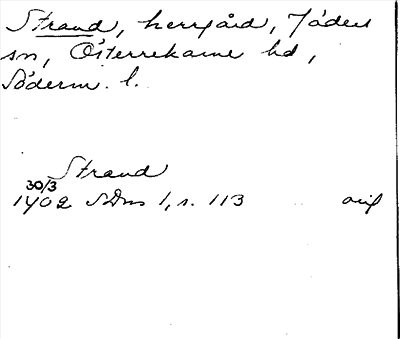 Strand, herrgård, Jäders
sn, Österrekarne hd,
Söderm. l.
Strand
30/3
1402 SDns 1, s. 113 orig